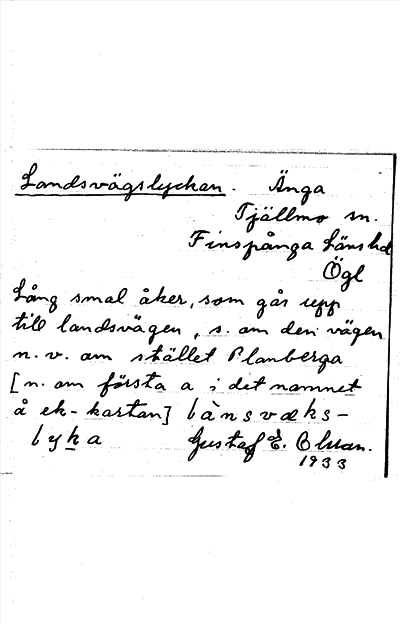 Landsvägslyckan. Änga
Tjällmo sn.
Finspånga länshd
Ögl
Lång smal åker, som går upp
till landsvägen, s. om den vägen
n. v. om stället Planberga
[n. om första a i det namnet
å ek-kartan] lànsvæks-
lyka Gustaf E. Olsson.
1933